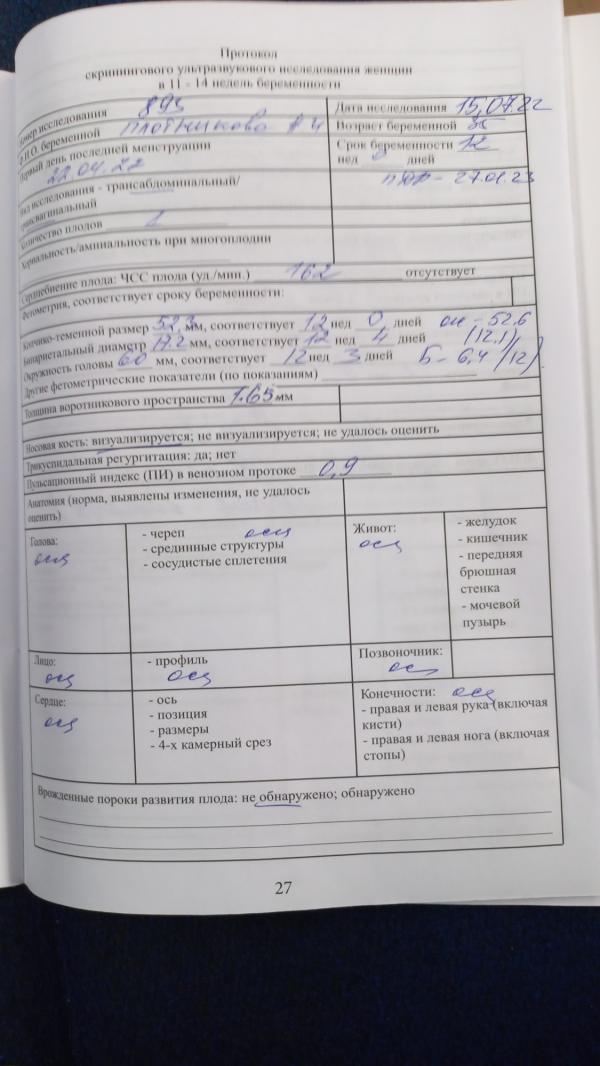 Протокол
скринингового ультразвукового исследования женщин
в 11 - 14 недель беременности
Номер исследования 895
Дата исследования 15,07.22
Ф.И.О. беременной Плотникова
Возраст беременной 35
Первый день последней менструации
22.04.22
Срок беременности 12
нед 0 дней
Вид исследования - трансабдоминальный/
трансвагинальный
ПДР - 27.01.23
Количество плодов 1
Хориальность/амниальность при многоплодии
Сердцебиение плода: ЧСС плода (уд./мин.) 162 отсутствует
Фетометрия, соответствует сроку беременности:
Копчико-теменной размер 52,3 мм, соответствует 12 нед 0 дней ОЖ - 52.6
Бипариетальный диаметр 17.2 мм, соответствует 12 нед 4 дней (12,1)
Окружность головы 60 мм, соответствует 12 нед 3 дней Б - 6,4 (12)
Другие фетометрические показатели (по показаниям)
Толщина воротникового пространства 1.65 мм
Носовая кость: визуализируется; не визуализируется; не удалось оценить
Трикуспидальная регургитация: да; нет
Пульсационный индекс (ПИ) в венозном протоке 0,9
Анатомия (норма, выявлены изменения, не удалось
оценить)
Голова:
осц
- череп осц
- срединные структуры
- сосудистые сплетения
Живот:
осц
- желудок
- кишечник
- передняя
брюшная
стенка
- мочевой
пузырь
Лицо:
осц
- профиль
осц
Позвоночник:
осц
Сердце:
осц
- ось
- позиция
- размеры
- 4-х камерный срез
Конечности: осц
- правая и левая рука (включая
кисти)
- правая и левая нога (включая
стопы)
Врожденные пороки развития плода: не обнаружено; обнаружено
27